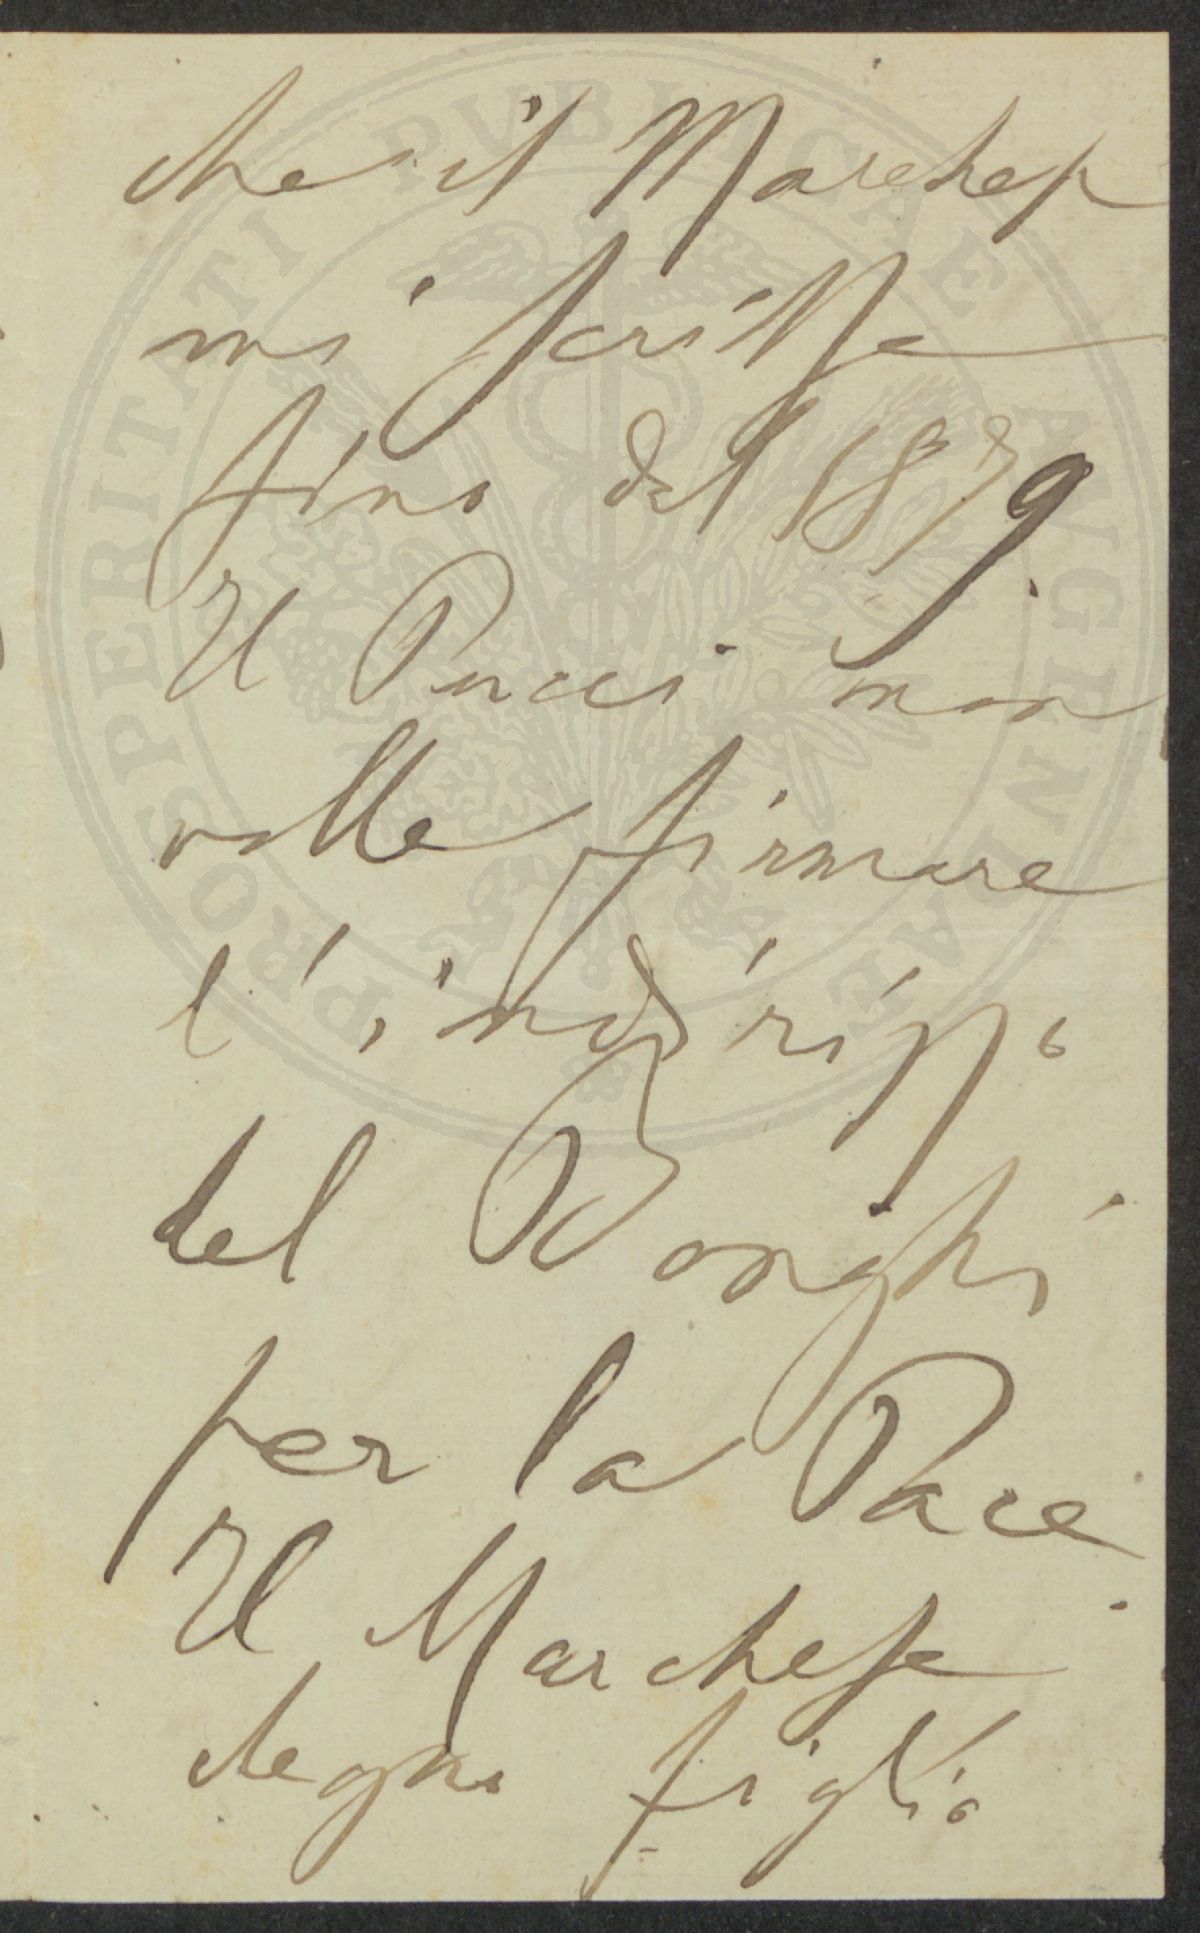 che il Marchese
mi scrisse
fino dal 1879.
Il Pucci non
volle firmare
l'indirizzo
del Bonghi
per la Pace.
Il Marchese
degno figlio
PROSPERITATI PVBLICAE AVGENDAE